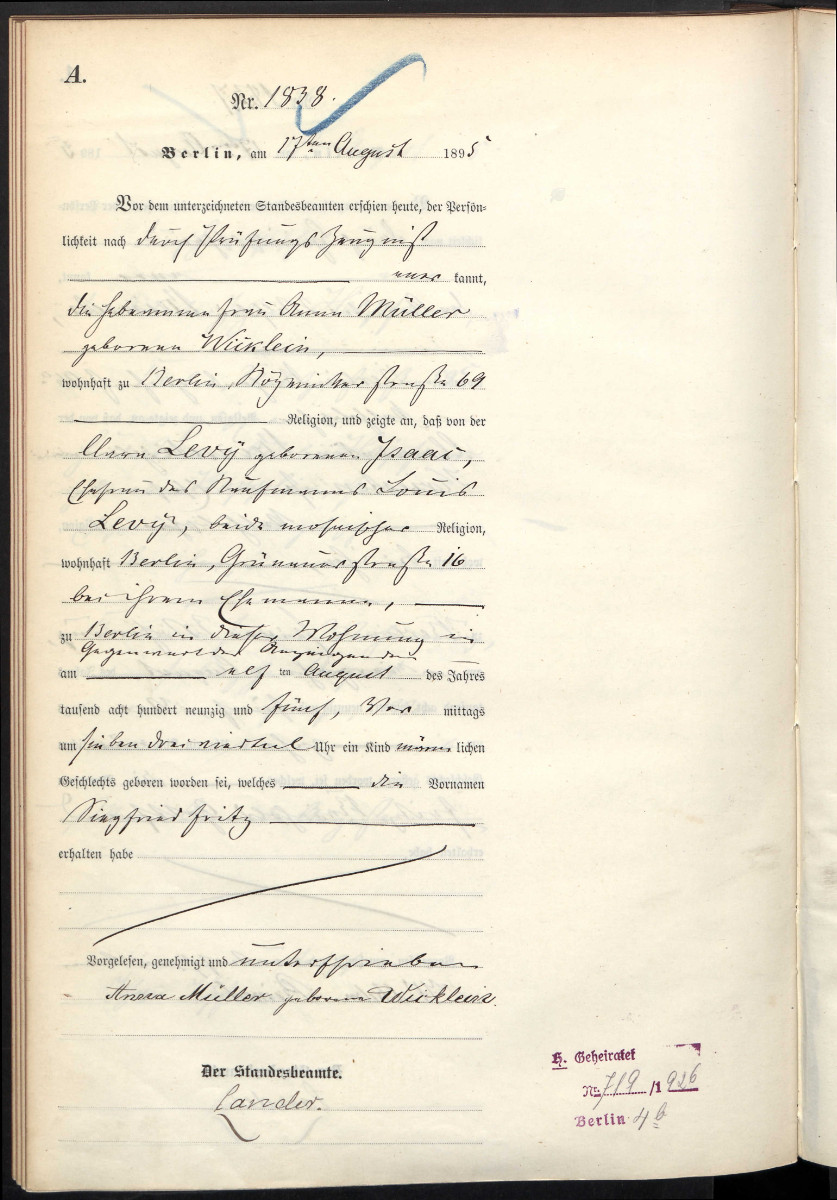 A.
Nr. 1838.
Berlin, am 17ten August 1895
Vor dem unterzeichneten Standesbeamten erschien heute, der Persön-
lichkeit nach durch Prüfungs Zeugniß
aner kannt,
die Hebamme Frau Anna Müller
geborenen Wicklein,
wohnhaft zu Berlin, straße 69
Religion, und zeigte an, daß von der
Clara Levy geborenen Isaac,
Ehefrau des Kaufmanns Louis
Levy, beide mosaischer Religion,
wohnhaft Berlin, Grünauerstraße 16
bei ihrem Ehemanne,
zu Berlin in dieser Wohnung in
Gegenwart der Anzeigenden
am elf ten August des Jahres
tausend acht hundert neunzig und fünf, Vor mittags
um sieben dreiviertel Uhr ein Kind männ lichen
Geschlechts geboren worden sei, welches die Vornamen
Siegfried Fritz
erhalten habe
Vorgelesen, genehmigt und unterschrieben
Anna Müller geborene Wicklein.
Der Standesbeamte.
H. Geheiratet
Nr. 719/1926
Berlin 4b